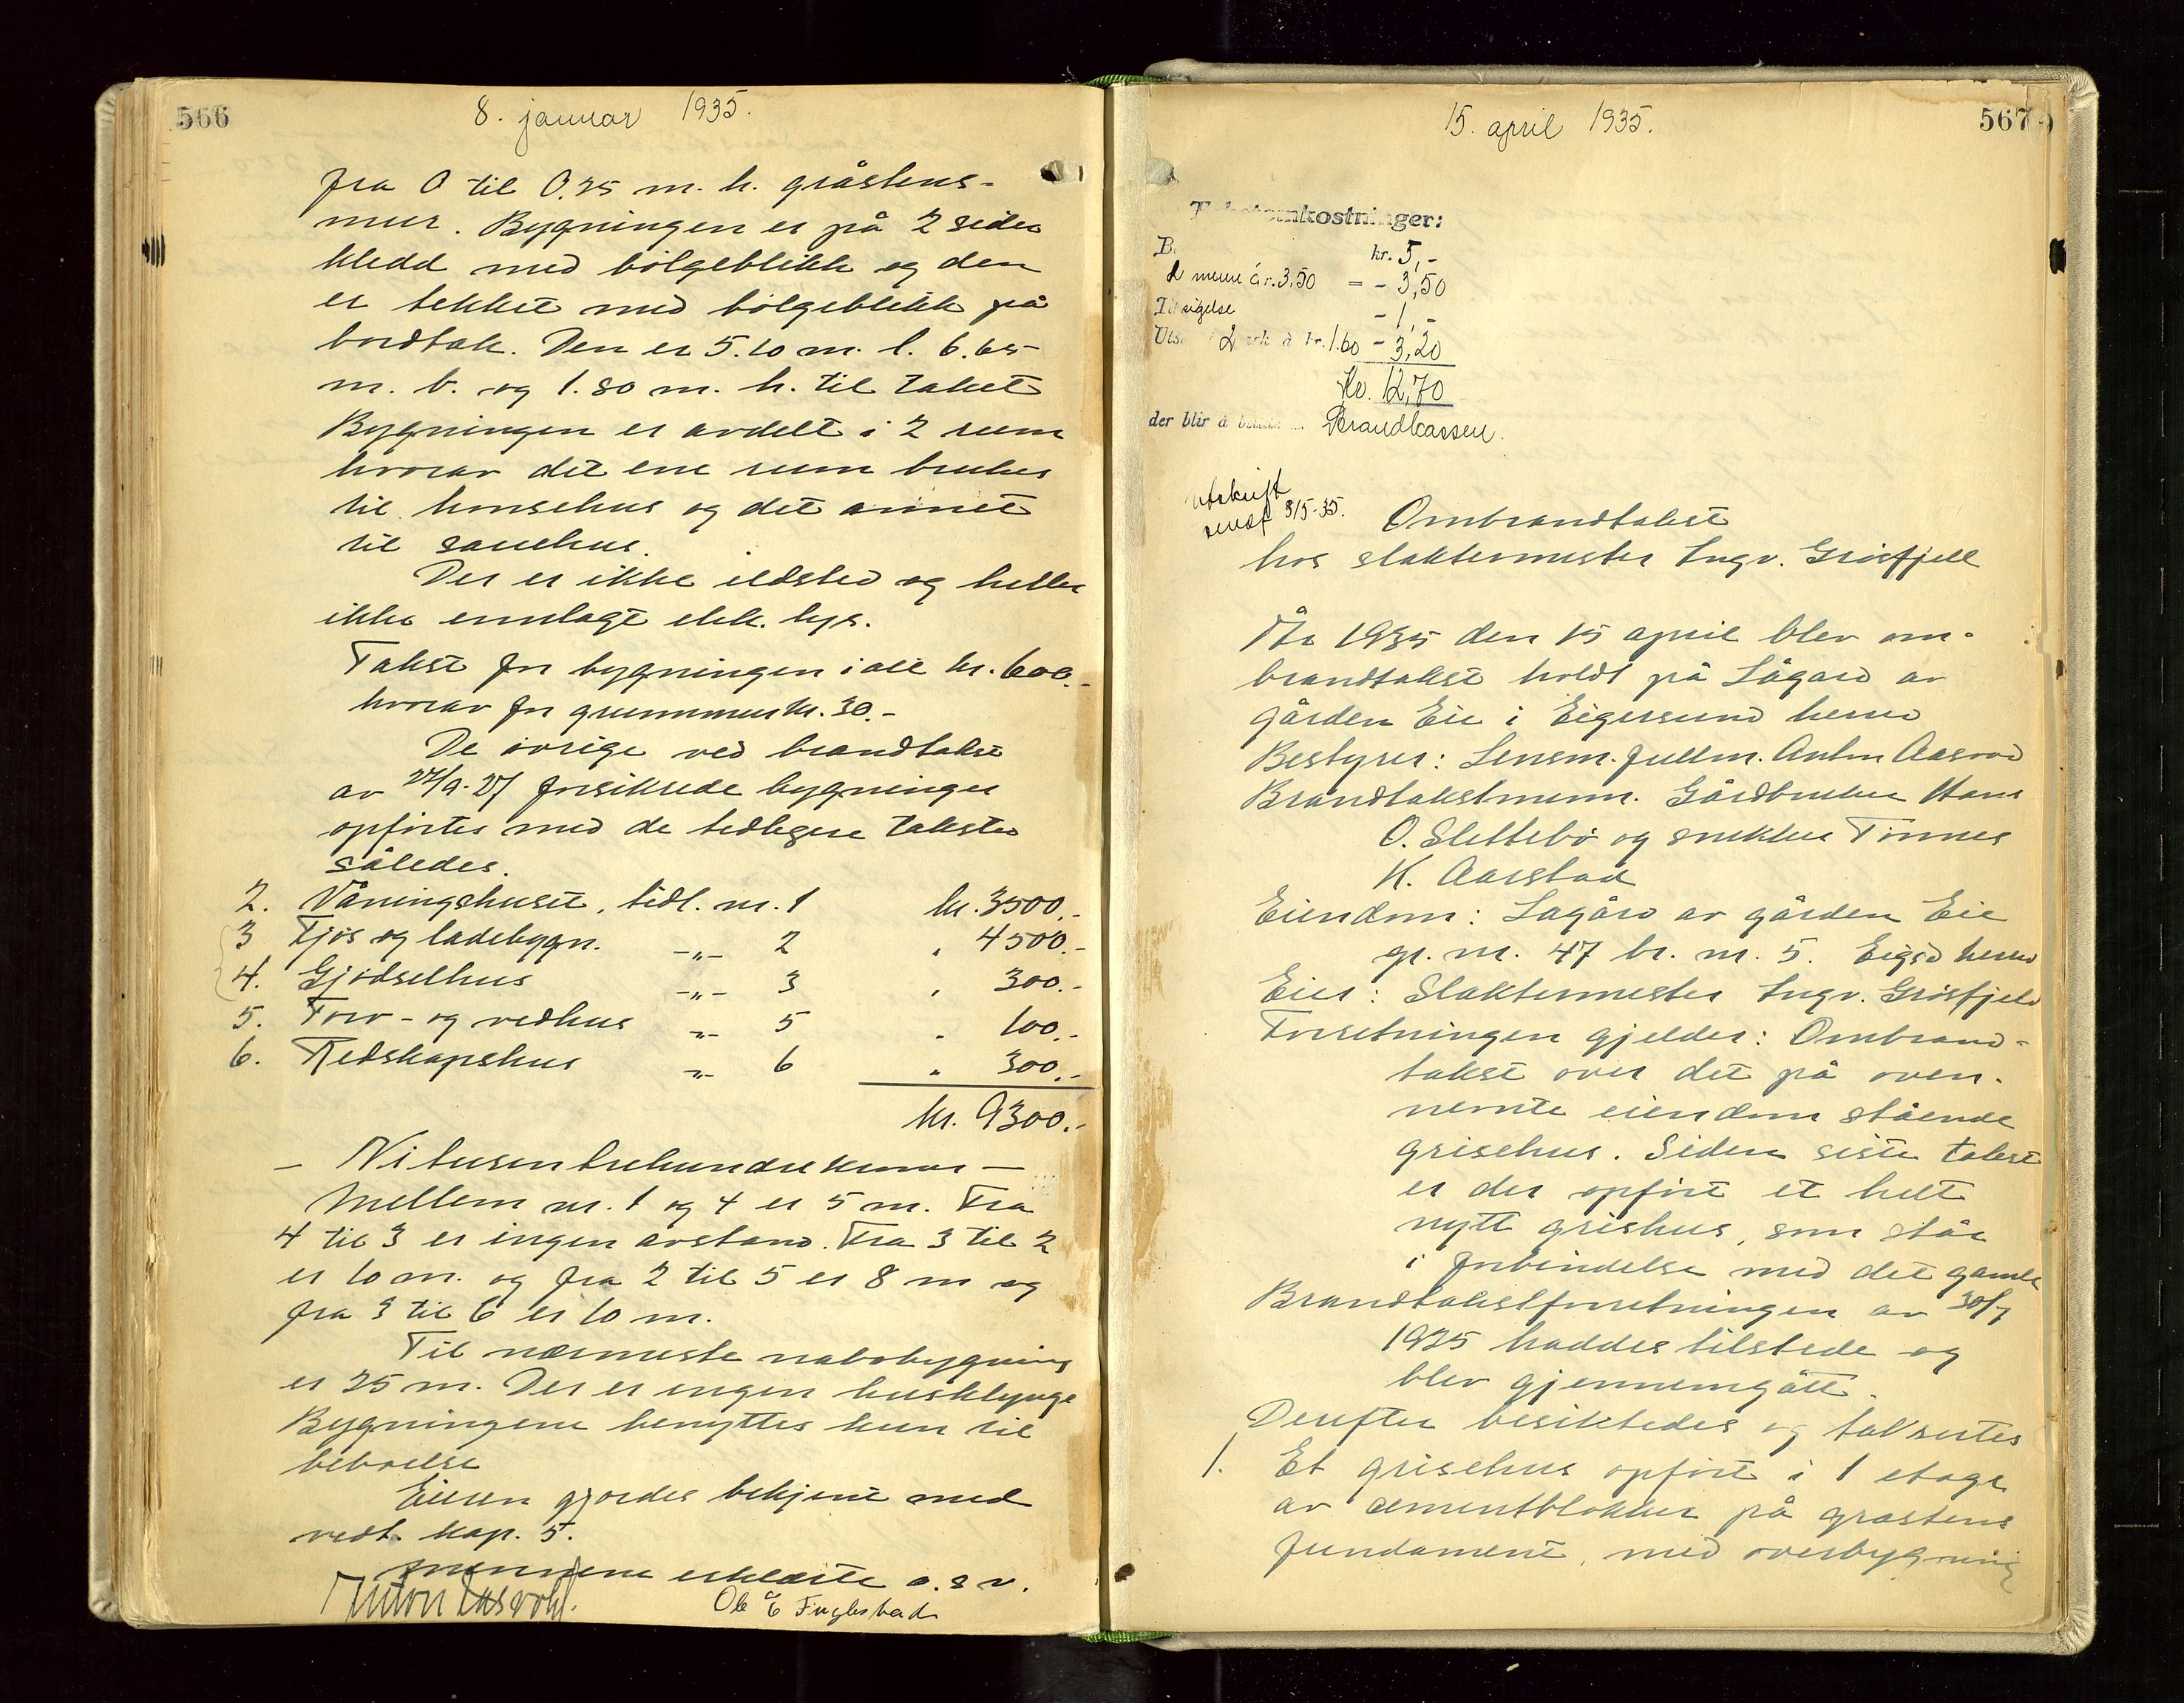 566
8. januar 1935.
fra 0 til 0.25 m. h. gråstens-
mur. Bygningen er på 2 sider
kledd med bølgeblikk og den
er tekket med bølgeblikk på
bordtak. Den er 5.10 m. l. 6.65
m. b. og 1.80 m. h. til taket
Bygningen er avdelt i 2 rum
hvorav det ene rum brukes
til hønsehus og det annet
til sauehus.
Der er ikke ildsted og heller
ikke innlagt elek. lys.
Takst for bygningen i alt kr. 600.-
hvorav for grunnmur kr. 30.-
De øvrige ved brandtakst
av 27/9-27 forsikrede bygninger
opførtes med de tidligere takster
således.
2. Våningshuset, tidl. nr. 1 kr. 3500.-
3 Fjøs og ladebygn. -„- 2 " 4500.-
4. Gjødselhus -„- 3 " 300.-
5. Torv- og vedhus -„- 5 " 100.-
6. Redskapshus -„- 6 " 300.-
kr. 9300.-
- Nitusentrehundre kroner -
Mellem nr. 1 og 4 er 5 m. Fra
4 til 3 er ingen avstand. Fra 3 til 2
er 10 m. og fra 2 til 5 er 8 m og
fra 3 til 6 er 10 m.
Til nærmeste nabobygning
er 25 m. Der er ingen husklynge
Bygningene benyttes kun til
beboelse
Eieren gjordes bekjent med
vedt. kap. 5.
Mennene erklærte o.s.v.
Anton Aasvold. Ole E Fuglestad
15. april 1935.
567
Takstomkostninger:
B. kr. 5,-
2 menn à kr. 3,50 = - 3,50
Tilsigelse - 1,-
Uts 2 ark à kr. 1.60 - 3,20
Kr. 12,70
der blir å betale Brandkassen.
Utskrift
sendt 8/5-35.
Ombrandtakst
hos slaktermester Ingv. Grøsfjell
År 1935 den 15 april blev om-
brandtakst holdt på Lågard av
gården Eie i Eigersund herred
Bestyrer: Lensm. fullm. Anton Aasvold
Brandtakstmenn. Gårdbruker Hans
O. Slettebø og snekker Tønnes
K. Aarstad
Eiendom: Lagård av gården Eie
gr. nr. 47 br. nr. 5. Eigsd herred
Eier: Slaktermester Ingv. Grøsfjeld
Forretningen gjelder: Ombrand-
takst over det på oven-
nevnte eiendom stående
grisehus. Siden siste takst
er der opført et helt
nytt grishus, som står
i forbindelse med det gamle
Brandtakstforretningen av 30/7
1925 haddes tilstede og
blev gjennemgått.
Derefter besiktedes og taksertes
1. Et grisehus opført i 1 etage
av cementblokker på grastens
fundament, med overbygning